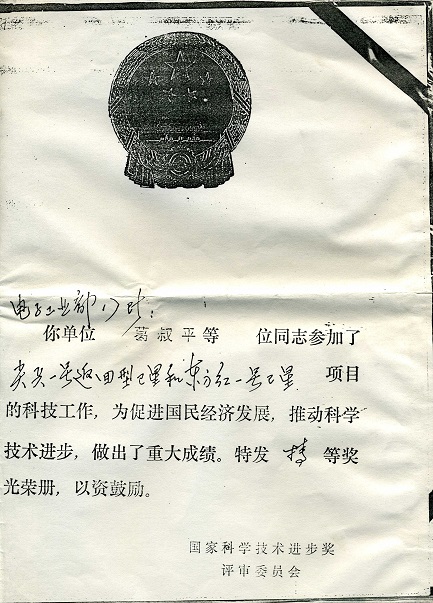 电子工业部17所：
你单位 葛叔平等 位同志参加了
尖兵一号返回型卫星和东方红一号卫星 项目
的科技工作，为促进国民经济发展，推动科学
技术进步，做出了重大成绩。特发 特 等奖
光荣册，以资鼓励。
国家科学技术进步奖
评审委员会